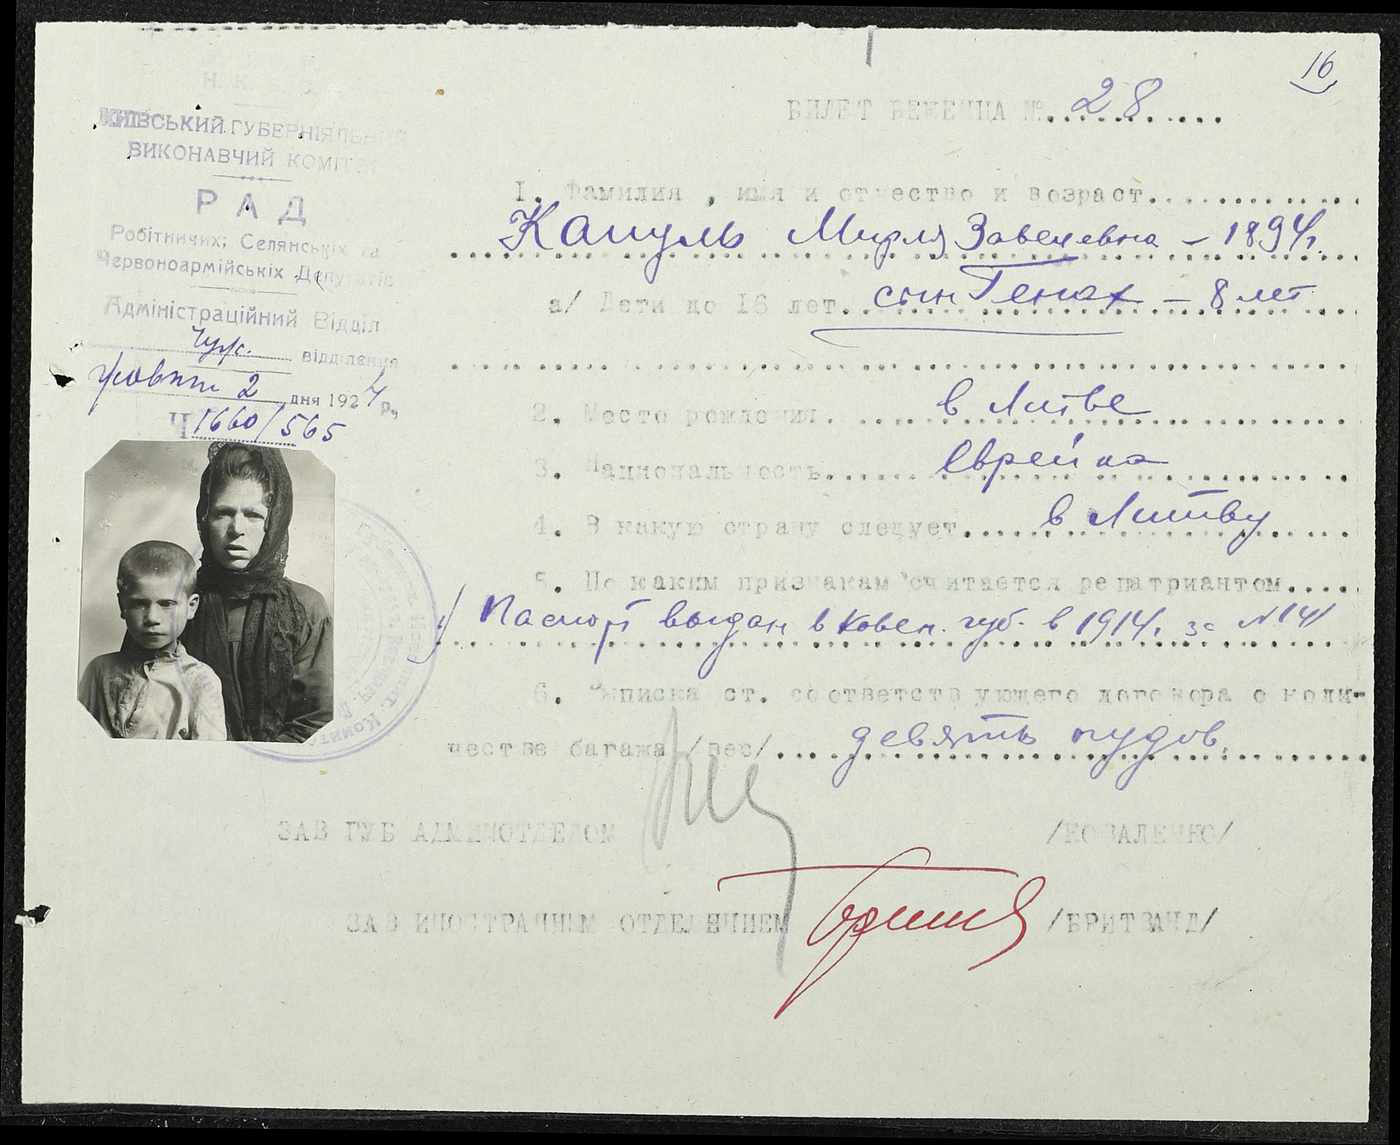 16
Н. К. В. С.
КИЇВСЬКИЙ ГУБЕРНІЯЛЬНИЙ
ВИКОНАВЧИЙ КОМІТЕТ
РАД
Робітничих, Селянських та
Червоноармійських Депутатів
Адміністраційний Відділ
Чуж. відділення
Жовтн 2 дня 1924 р.
Ч 1660/565
БИЛЕТ БЕЖЕНЦА № 28
I. Фамилия , имя и отчество и возраст
Капуль Мирля Завелевна – 1894 г.
а/ Дети до 16 лет. сын Генах – 8 лет
2. Место рождения. в Литве
3. Национальность. Еврейка
4. В какую страну следует. в Литву
5. По каким признакам считается репатриантом.
Паспорт выдан в Ковен. губ. в 1914 г. за № 141
6. Выписка ст. соответствующего договора о коли-
честве багажа /вес/ девять пудов.
ЗАВ ГУБ АДМИНОТДЕЛОМ /КОВАЛЕНКО/
ЗАВ ИНОСТРАННЫМ ОТДЕЛЕНИЕМ /БРИТВАНД/